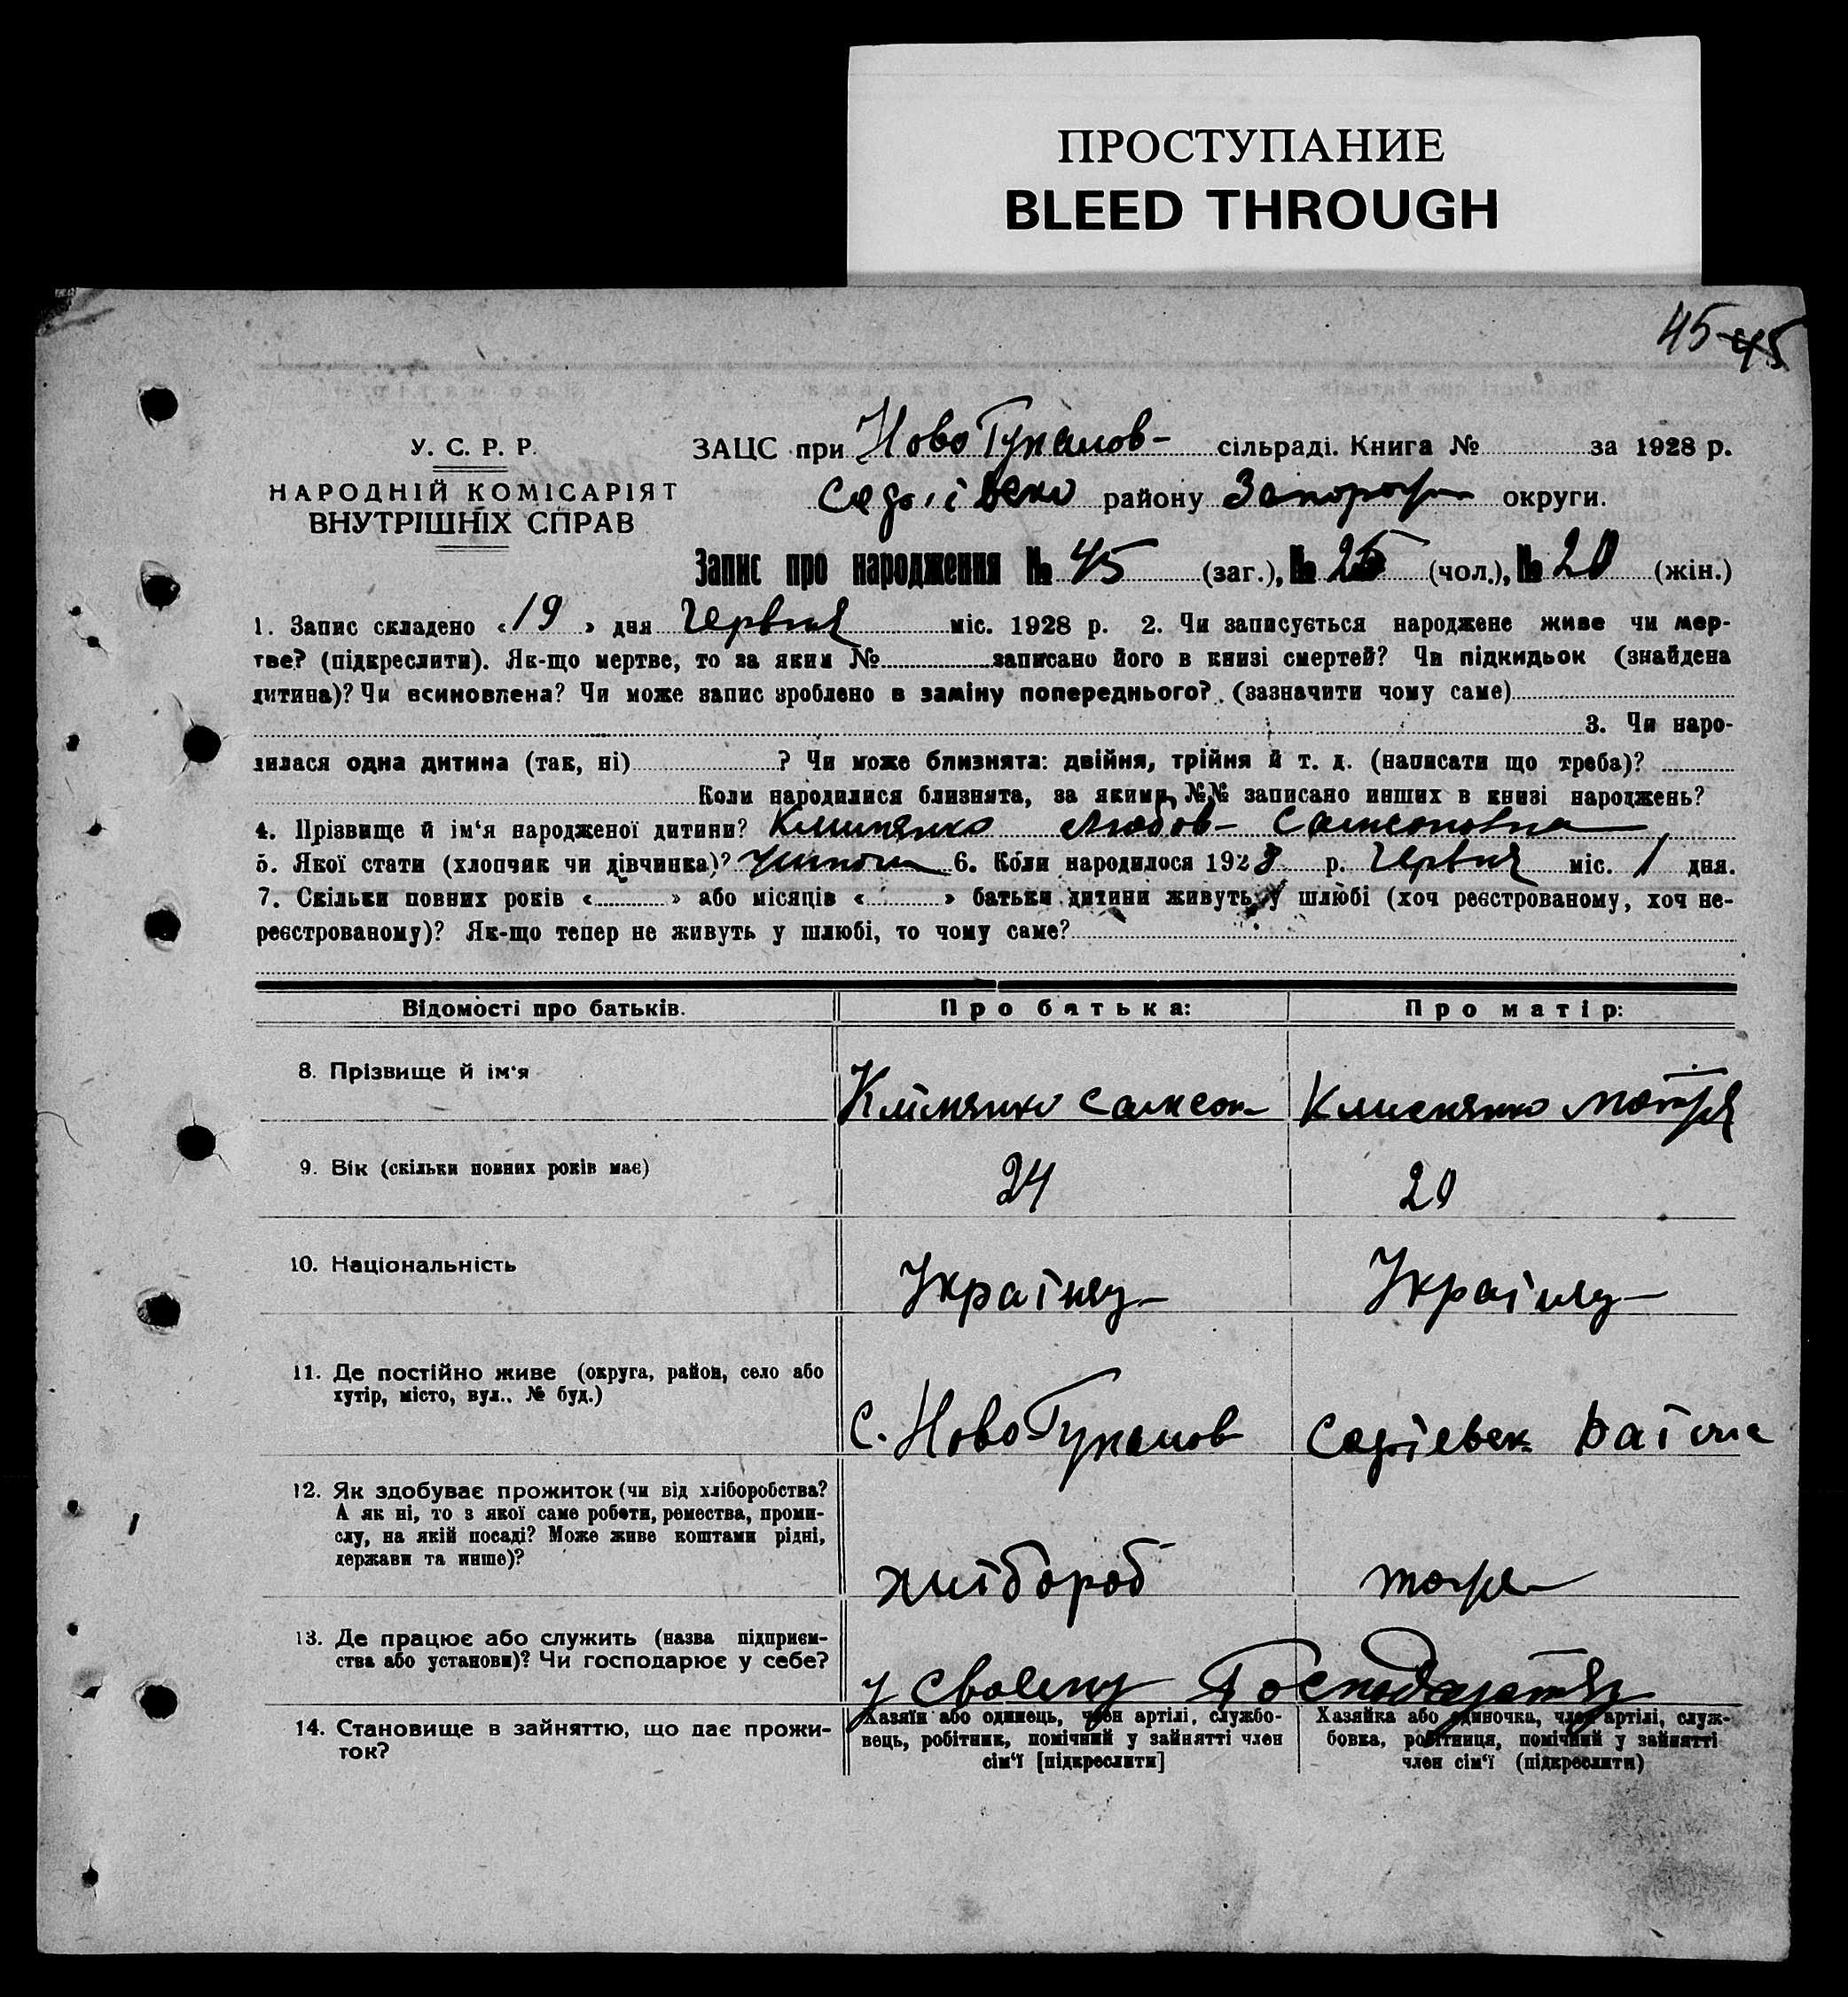 ПРОСТУПАНИЕ
BLEED THROUGH
45 45
У. С. Р. Р.
НАРОДНІЙ КОМІСАРІЯТ
ВНУТРІШНІХ СПРАВ
ЗАЦС при Ново Гупалов- сільраді. Книга № за 1928 р.
району округи.
Запис про народження № 45 (заг.), № 25 (чол.), № 20 (жін.)
1. Запис складено «19» дня Червня міс. 1928 р. 2. Чи записується народжене живе чи мер-
тве? (підкреслити). Як-що мертве, то за яким № записано його в книзі смертей? Чи підкидьок (знайдена
дитина)? Чи всиновлена? Чи може запис зроблено в заміну попереднього? (зазначити чому саме)
3. Чи наро-
дилася одна дитина (так, ні) ? Чи може близнята: двійня, трійня й т. д. (написати що треба)?
Коли народилися близнята, за якими №№ записано инших в книзі народжень?
4. Прізвище й ім‘я народженої дитини? Климянко Любов- Самсоновна
5. Якої стати (хлопчик чи дівчинка)? 6. Коли народилося 1928 р. Червня міс. 1 дня.
7. Скільки повних років « » або місяців « » батьки дитини живуть у шлюбі (хоч реєстрованому, хоч не-
реєстрованому)? Як-що тепер не живуть у шлюбі, то чому саме?
Відомості про батьків. Про батька: Про матір:
8. Прізвище й ім‘я Клімянко Самсон Климянко Мотря
9. Вік (скільки повних років має) 24 20
10. Національність Українц- Українц-
11. Де постійно живе (округа, район, село або
хутір, місто, вул., № буд.)
с. Ново Гупалов
12. Як здобуває прожиток (чи від хліборобства?
А як ні, то з якої саме роботи, ремества, проми-
слу, на якій посаді? Може живе коштами рідні,
держави та инше)?
хлібороб
13. Де працює або служить (назва підприєм-
ства або установи)? Чи господарює у себе?
у своему Господарстві
14. Становище в зайняттю, що дає прожи-
ток?
Хазяїн або одинець, член артілі, службо-
вець, робітник, помічний у зайнятті член
сім‘ї [підкреслити]
Хазяйка або одиночка, член артілі, служ-
бовка, робітниця, помічний у зайнятті
член сім‘ї (підкреслити)